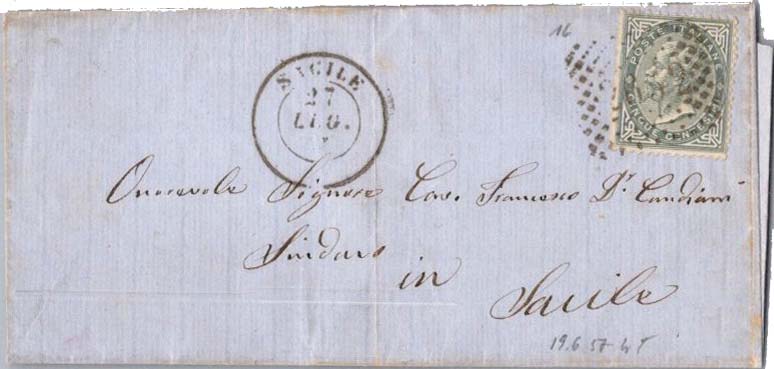 16
POSTE ITALIANE
CINQUE CENTESIMI
SACILE
27
LUG.
Onorevole Signore Cav. Francesco Dr Candiani
Sindaco
in
Sacile
19.6 57